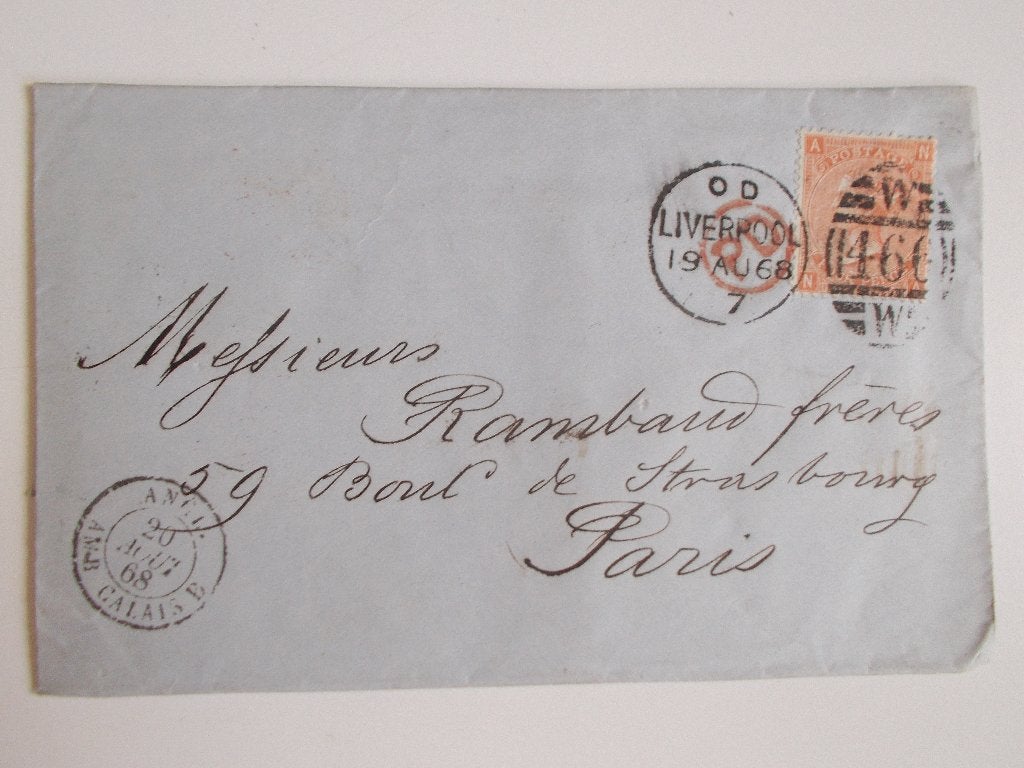 A N
POSTAGE
O D
LIVERPOOL
19 AU 68
7
PD
W
466
W
N
Messieurs
Rambaud frères
59 Boul de Strasbourg
Paris
ANGL.
20
AOUT
68
AMB CALAIS B